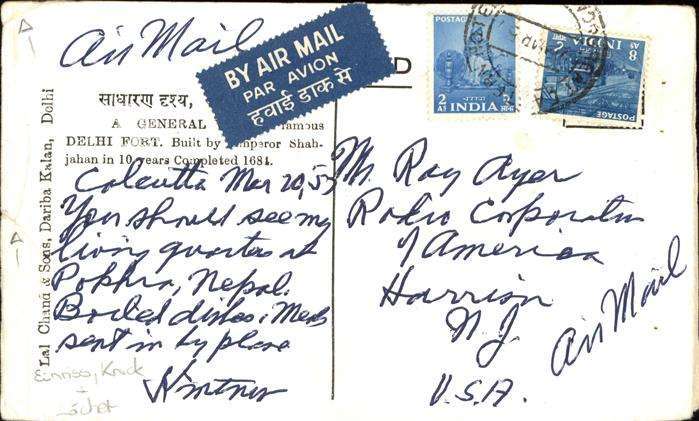 Air Mail
BY AIR MAIL
PAR AVION
हवाई डाक से
साधारण दृश्य,
A GENERAL
DELHI FORT. Built by Emperor Shah-
jahan in 10 years Completed 1684.
Lal Chand & Sons, Dariba Kalan, Delhi
Calcutta Mar 20, 53
You should see my
living quarters at
Pokhra, Nepal.
Boiled dishes. Meals
sent in by plane
POSTAGE
2 AS
INDIA
POSTAGE
8 AS
INDIA
Mr. Ray Ayer
Radio Corporation
of America
Harrison
N.J.
U.S.A.
Air Mail